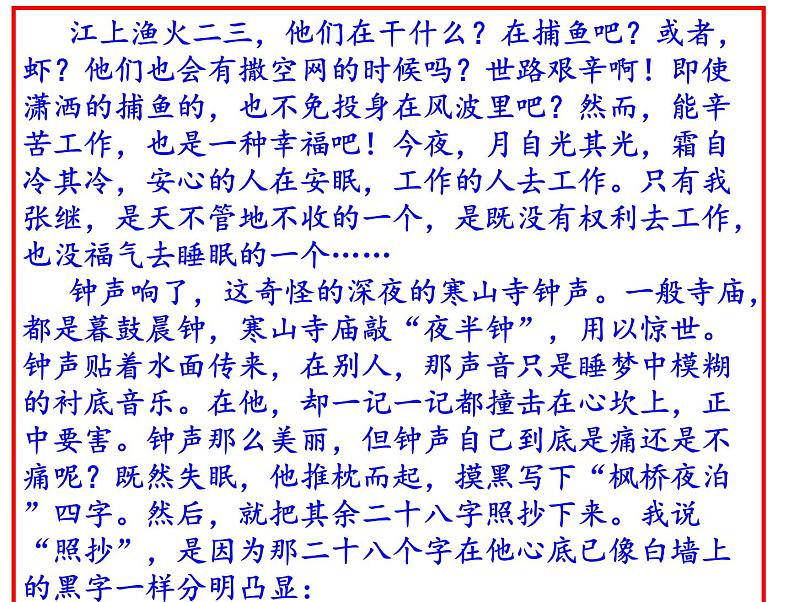 江上渔火二三，他们在干什么？在捕鱼吧？或者，
虾？他们也会有撒空网的时候吗？世路艰辛啊！即使
潇洒的捕鱼的，也不免投身在风波里吧？然而，能辛
苦工作，也是一种幸福吧！今夜，月自光其光，霜自
冷其冷，安心的人在安眠，工作的人去工作。只有我
张继，是天不管地不收的一个，是既没有权利去工作，
也没福气去睡眠的一个……
钟声响了，这奇怪的深夜的寒山寺钟声。一般寺庙，
都是暮鼓晨钟，寒山寺庙敲“夜半钟”，用以惊世。
钟声贴着水面传来，在别人，那声音只是睡梦中模糊
的衬底音乐。在他，却一记一记都撞击在心坎上，正
中要害。钟声那么美丽，但钟声自己到底是痛还是不
痛呢？既然失眠，他推枕而起，摸黑写下“枫桥夜泊
”四字。然后，就把其余二十八字照抄下来。我说
“照抄”，是因为那二十八个字在他心底已像白墙上
的黑字一样分明凸显：